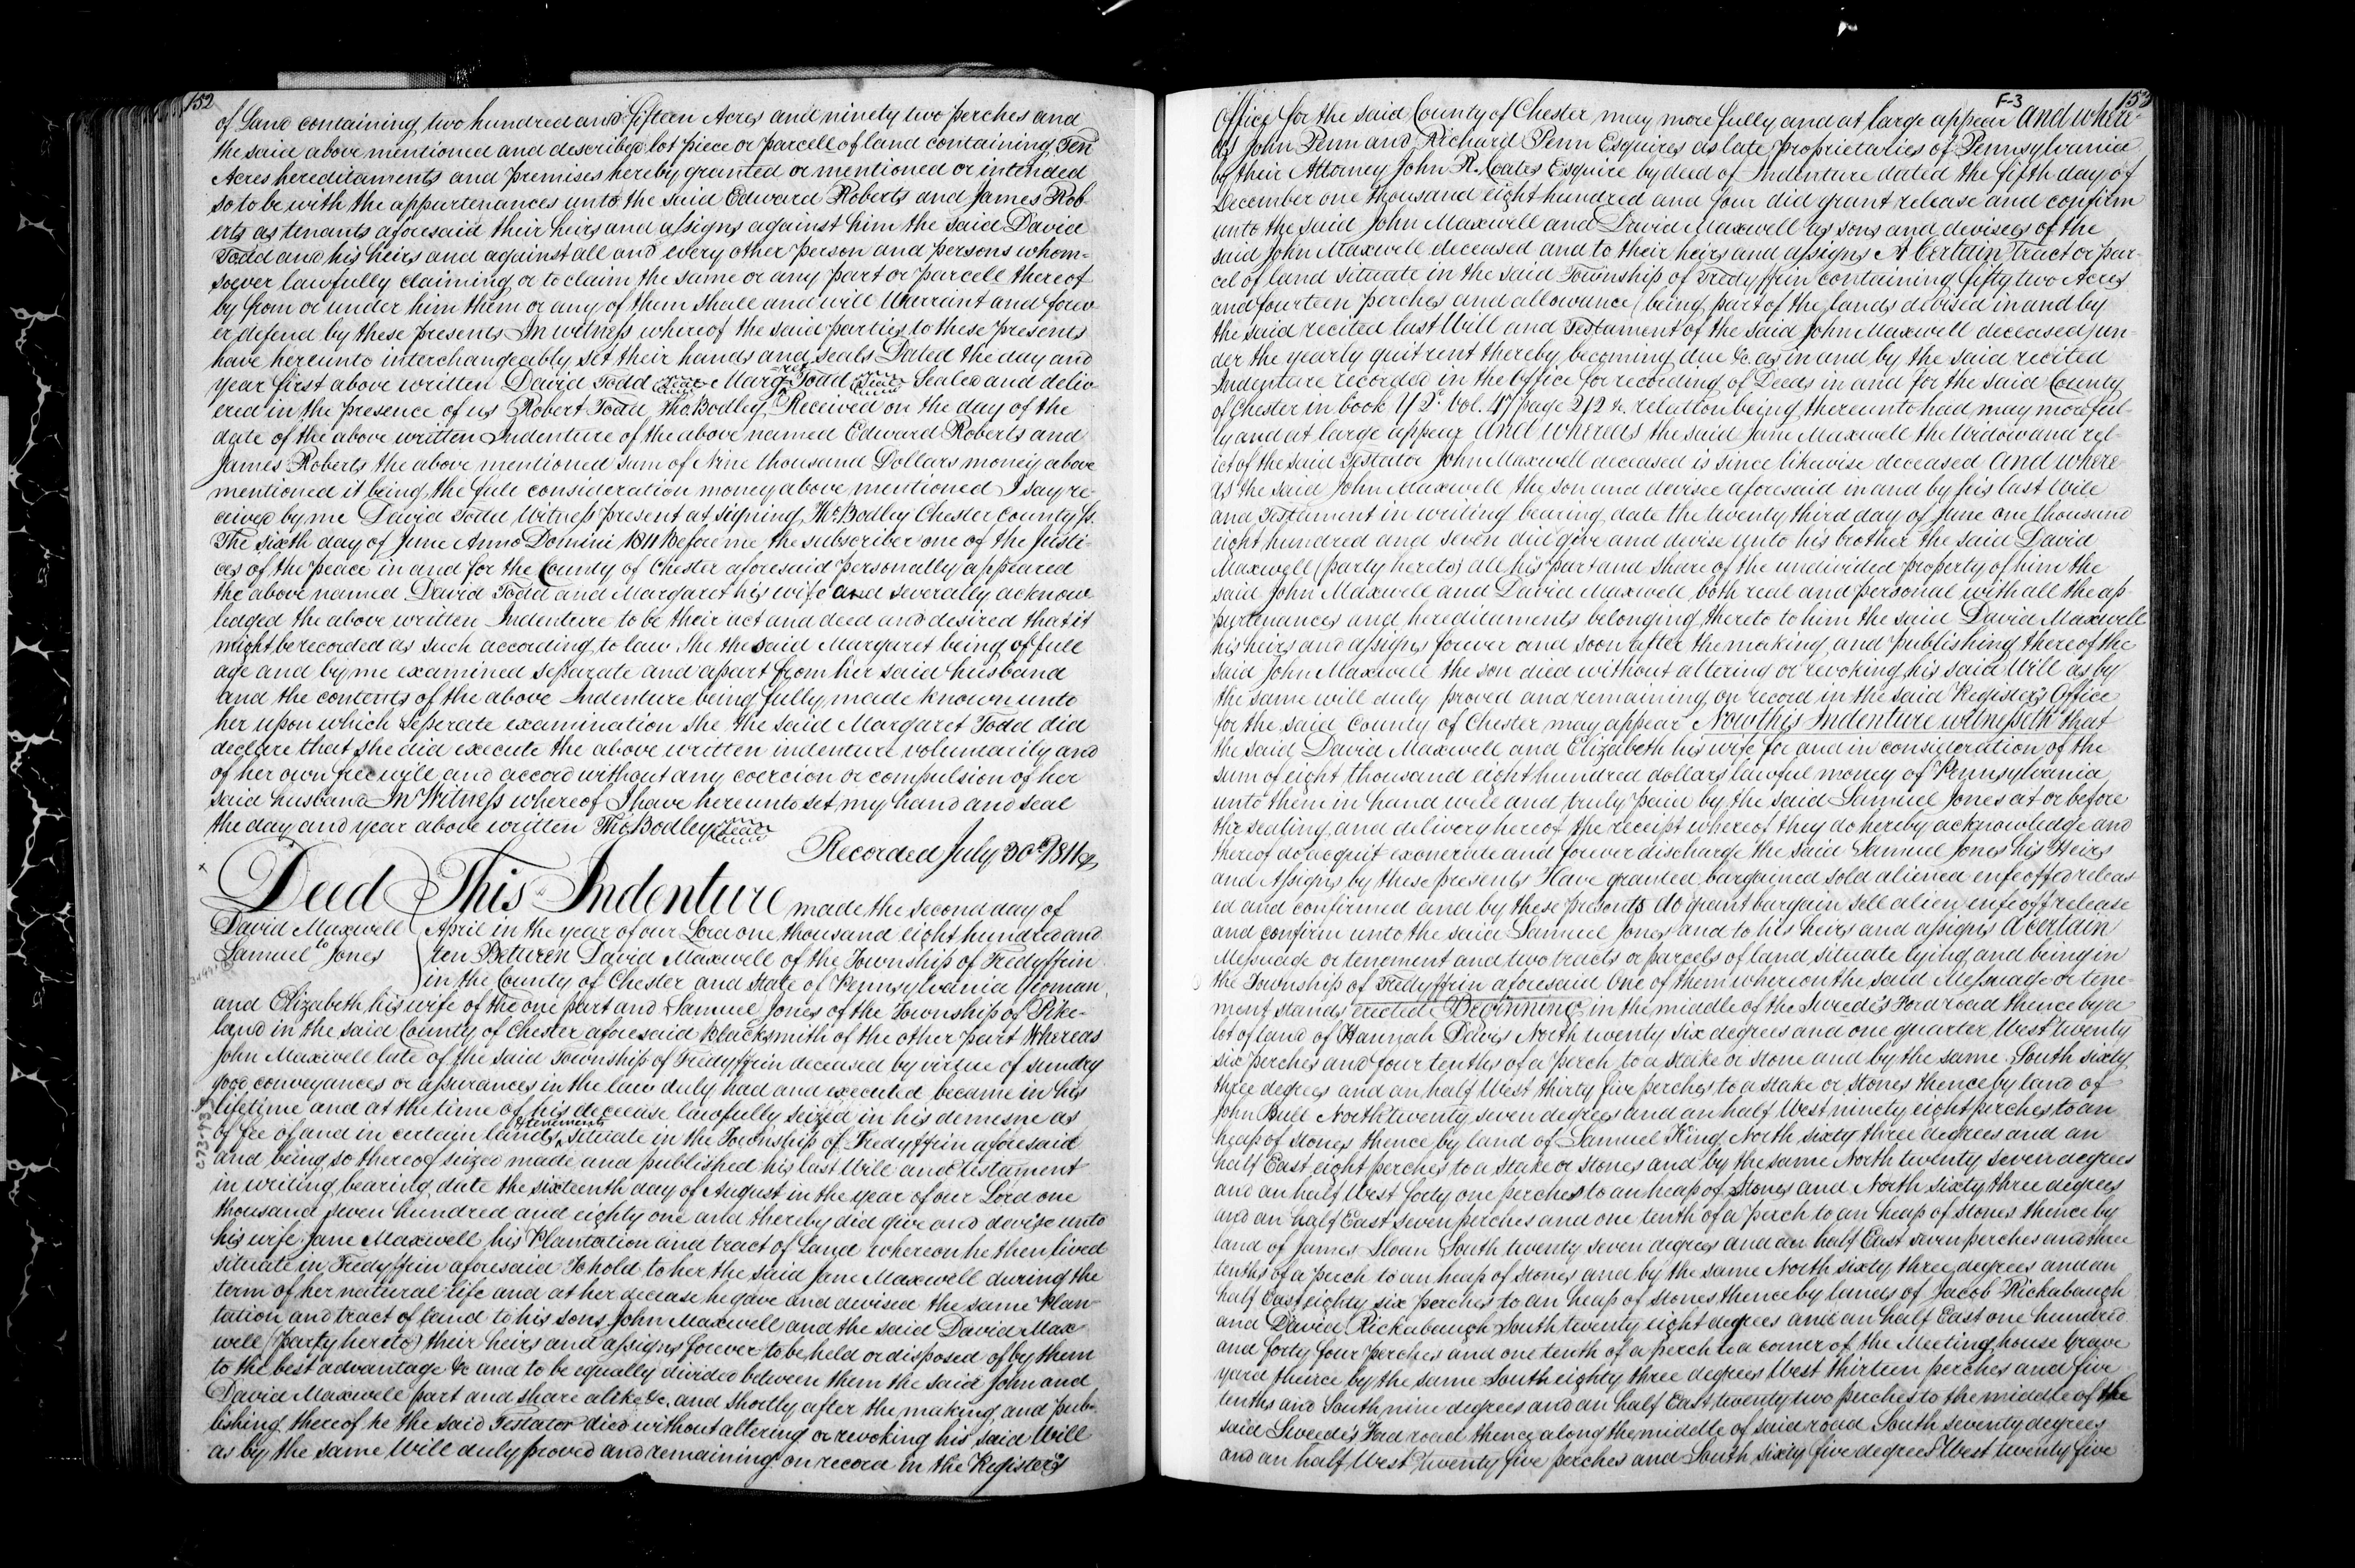 152
of Land containing two hundred and fifteen Acres and ninety two perches and
the said above mentioned and described lot piece or parcell of land containing Ten
Acres hereditaments and premises hereby granted or mentioned or intended
so to be with the appurtenances unto the said Edward Roberts and James Rob
erts as tenants aforesaid their heirs and assigns against him the said David
Todd and his heirs and against all and every other person and persons whom=
soever lawfully claiming or to claim the same or any part or parcell thereof
by from or under him them or any of them Shall and will Warrant and forev
er defend by these presents In witness whereof the said parties to these presents
have hereunto interchangeably set their hands and seals Dated the day and
year first above written David Todd Seal Margret Todd Seal Sealed and deliv
ered in the presence of us Robert Todd, Tho. Bodley, Received on the day of the
date of the above written Indenture of the above named Edward Roberts and
James Roberts the above mentioned sum of Nine thousand Dollars money above
mentioned it being the full consideration money above mentioned I say re-
ceived by me David Todd Witness present at signing Tho. Bodley Chester County Ss.
The sixth day of June Anno Domini 1811 Before me the subscriber one of the Justi-
ces of the peace in and for the County of Chester aforesaid personally appeared
the above named David Todd and Margaret his wife and severally acknow
ledged the above written Indenture to be their act and deed and desired that it
might be recorded as such according to law She the said Margaret being of full
age and by me examined separate and apart from her said husband
and the contents of the above Indenture being fully made known unto
her upon which seperate examination she the said Margaret Todd did
declare that she did execute the above written indenture voluntarily and
of her own free will and accord without any coercion or compulsion of her
said husband In Witness whereof I have hereunto set my hand and seal
the day and year above written Tho. Bodley Seal
Recorded July 30th 1811
Deed This Indenture made the second day of
David Maxwell April in the year of our Lord one thousand eight hundred and
to
Samuel Jones ten Between David Maxwell of the Township of Tredyffrin
in the County of Chester and State of Pennsylvania Yeoman
and Elizabeth his wife of the one part and Samuel Jones of the Township of Pike-
land in the said County of Chester aforesaid Blacksmith of the other part Whereas
John Maxwell late of the said Township of Tredyffrin deceased by virtue of sundry
good conveyances or assurances in the law duly had and executed became in his
lifetime and at the time of his decease lawfully seized in his demesne as
of fee of and in certain lands & tenements situate in the Township of Tredyffrin aforesaid
and being so thereof seized made and published his last Will and Testament
in writing bearing date the sixteenth day of August in the year of our Lord one
thousand seven hundred and eighty one and thereby did give and devise unto
his wife Jane Maxwell his Plantation and tract of Land whereon he then lived
situate in Tredyffrin aforesaid To hold to her the said Jane Maxwell during the
term of her natural life and at her decease he gave and devised the same Plan-
tation and tract of land to his sons John Maxwell and the said David Max
well (party hereto) their heirs and assigns forever to be held or disposed of by them
to the best advantage &c and to be equally divided between them the said John and
David Maxwell part and share alike &c. and shortly after the making and pub-
lishing thereof he the said Testator died without altering or revoking his said Will
as by the same Will duly proved and remaining on record in the Register's
F-3 153
Office for the said County of Chester may more fully and at large appear And where-
as John Penn and Richard Penn Esquires as late proprietaries of Pennsylvania
by their Attorney John R. Coates Esquire by deed of Indenture dated the fifth day of
December one thousand eight hundred and four did grant release and confirm
unto the said John Maxwell and David Maxwell as sons and devisees of the
said John Maxwell deceased and to their heirs and assigns A Certain Tract or par-
cel of land situate in the said Township of Tredyffrin containing fifty two Acres
and fourteen perches and allowance (being part of the lands devised in and by
the said recited last Will and Testament of the said John Maxwell deceased) un-
der the yearly quitrent thereby becoming due &c as in and by the said recited
Indenture recorded in the Office for recording of Deeds in and for the said County
of Chester in book Y 2c. Vol. 47 page 212 &c. relation being thereunto had may more ful-
ly and at large appear And whereas the said Jane Maxwell the Widow and rel-
ict of the said Testator John Maxwell deceased is since likewise deceased And where
as the said John Maxwell the son and devisee aforesaid in and by his last Will
and Testament in writing bearing date the twenty third day of June one thousand
eight hundred and seven did give and devise unto his brother the said David
Maxwell (party hereto) all his part and share of the undivided property of him the
said John Maxwell and David Maxwell both real and personal with all the ap-
purtenances and hereditaments belonging thereto to him the said David Maxwell
his heirs and assigns forever and soon after the making and publishing thereof the
said John Maxwell the son died without altering or revoking his said Will as by
the same will duly proved and remaining on record in the said Register's Office
for the said County of Chester may appear Now this Indenture witnesseth that
the said David Maxwell and Elizabeth his wife for and in consideration of the
sum of eight thousand eight hundred dollars lawful money of Pennsylvania
unto them in hand well and truly paid by the said Samuel Jones at or before
the sealing and delivery hereof the receipt whereof they do hereby acknowledge and
thereof do acquit exonerate and forever discharge the said Samuel Jones his Heirs
and Assigns by these presents Have granted bargained sold aliened enfeoffed releas
ed and confirmed and by these presents do grant bargain sell alien enfeoff release
and confirm unto the said Samuel Jones and to his heirs and assigns A certain
Messuage or tenement and two tracts or parcels of land situate lying and being in
the Township of Tredyffrin aforesaid One of them whereon the said Messuage or tene-
ment stands erected Beginning in the middle of the Swede's Ford road thence by a
lot of land of Hannah Davis North twenty six degrees and one quarter West twenty
six perches and four tenths of a perch to a stake or stone and by the same South sixty
three degrees and an half West thirty five perches to a stake or stones thence by land of
John Bull North twenty seven degrees and an half West ninety eight perches to an
heap of stones thence by land of Samuel King North sixty three degrees and an
half East eight perches to a stake or stones and by the same North twenty seven degrees
and an half West forty one perches to an heap of stones and North sixty three degrees
and an half East seven perches and one tenth of a perch to an heap of stones thence by
land of James Sloan South twenty seven degrees and an half East seven perches and three
tenths of a perch to an heap of stones and by the same North sixty three degrees and an
half East eighty six perches to an heap of stones thence by lands of Jacob Rickabaugh
and David Rickabaugh South twenty eight degrees and an half East one hundred
and forty four perches and one tenth of a perch to a corner of the Meeting house Grave
yard thence by the same South eighty three degrees West thirteen perches and five
tenths and South nine degrees and an half East twenty two perches to the middle of the
said Swede's Ford road thence along the middle of said road South seventy degrees
and an half West twenty five perches and South sixty five degrees West twenty five